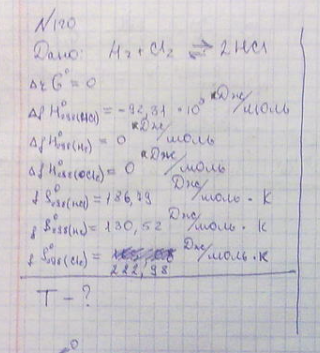 N 120
Дано: H₂ + Cl₂ ⇌ 2HCl
Δr G⁰ = 0
Δf H⁰298(HCl) = -92,31 · 10³ кДж/моль
Δf H⁰298(H₂) = 0 кДж/моль
Δf H⁰298(Cl₂) = 0 кДж/моль
f S⁰298(HCl) = 186,79 Дж/моль · К
f S⁰298(H₂) = 130,52 Дж/моль · К
f S⁰298(Cl₂) = 222,98 Дж/моль · К
T - ?